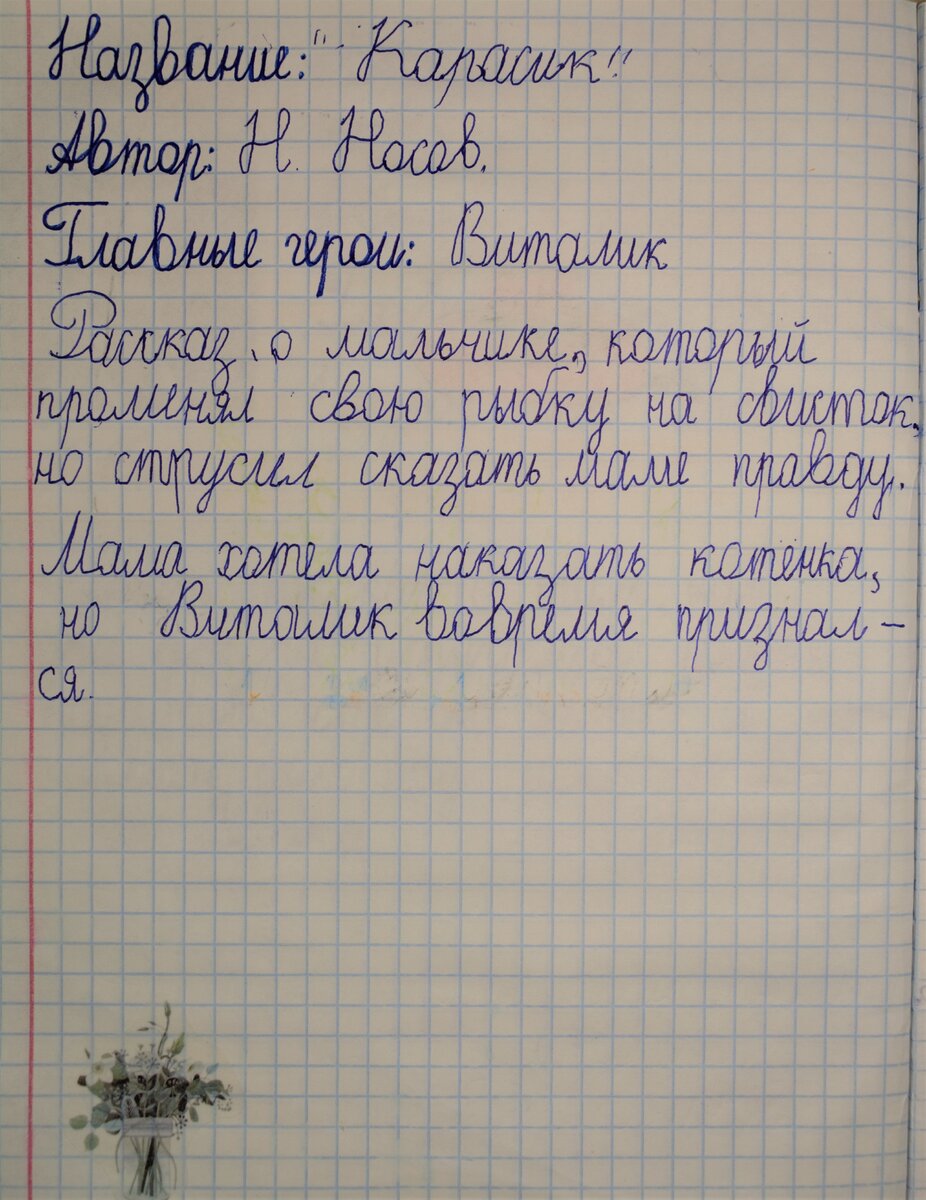 Название: "Карасик"
Автор: Н. Носов.
Главные герои: Виталик
Рассказ о мальчике, который
променял свою рыбку на свисток,
но струсил сказать маме правду.
Мама хотела наказать котенка,
но Виталик вовремя признал-
ся.